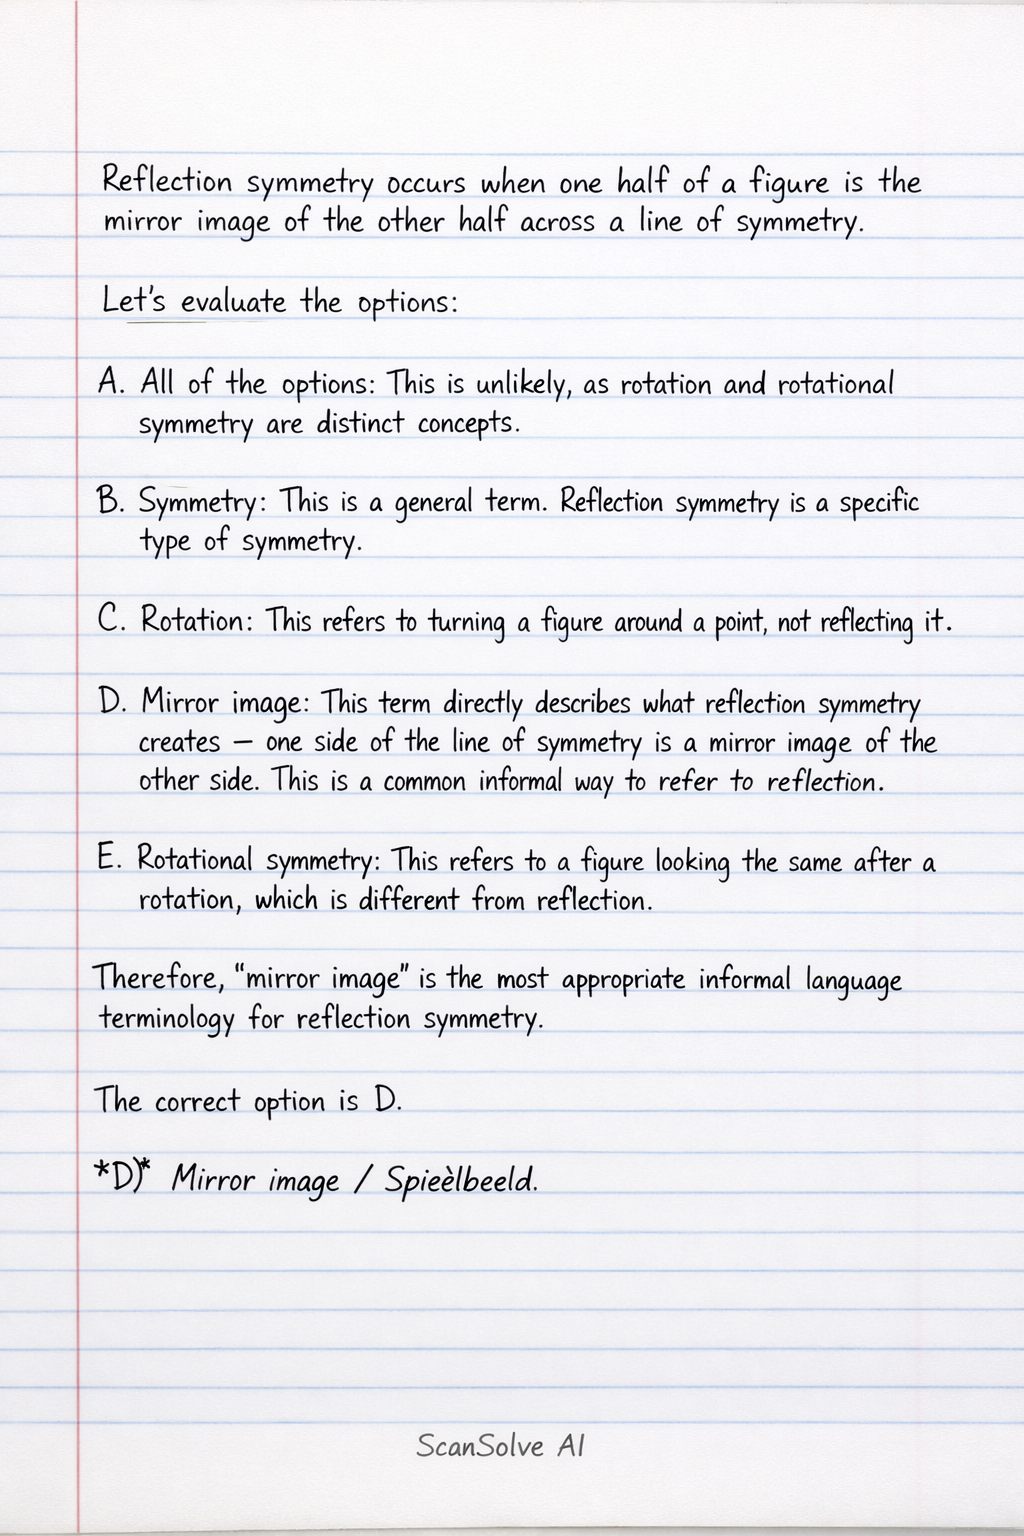 Reflection symmetry occurs when one half of a figure is the
mirror image of the other half across a line of symmetry.
Let's evaluate the options:
A. All of the options: This is unlikely, as rotation and rotational
symmetry are distinct concepts.
B. Symmetry: This is a general term. Reflection symmetry is a specific
type of symmetry.
C. Rotation: This refers to turning a figure around a point, not reflecting it.
D. Mirror image: This term directly describes what reflection symmetry
creates — one side of the line of symmetry is a mirror image of the
other side. This is a common informal way to refer to reflection.
E. Rotational symmetry: This refers to a figure looking the same after a
rotation, which is different from reflection.
Therefore, "mirror image" is the most appropriate informal language
terminology for reflection symmetry.
The correct option is D.
*D)* Mirror image / Spieèlbeeld.
ScanSolve AI